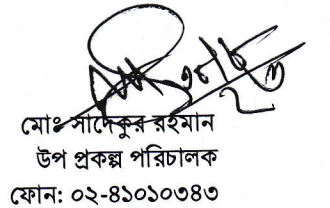 মোঃ সাদেকুর রহমান
উপ প্রকল্প পরিচালক
ফোন: ০২-৪১০১০৩৪৩